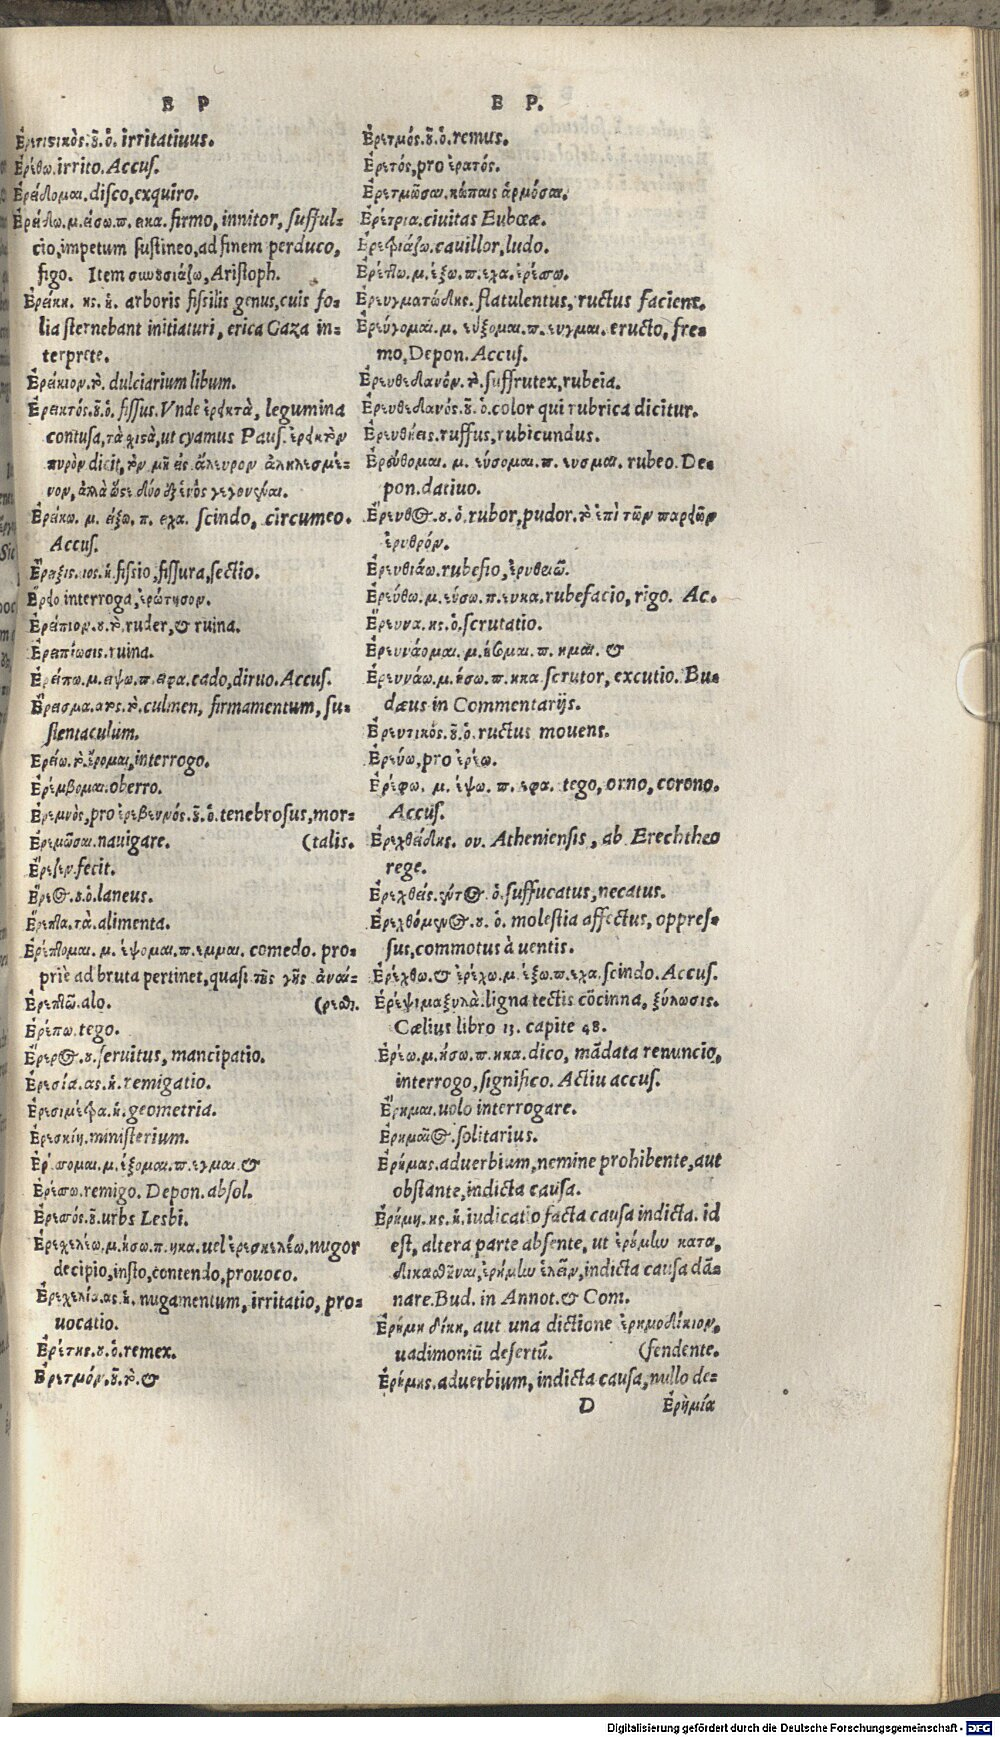 Ε Ρ
Ἐριστικὸς.οῦ.ὁ. irritatiuus.
Ἐρέθω.irrito. Accus.
Ἐρείδομαι.disco, exquiro.
Ἐρείδω.μ.είσω.π.εικα. firmo, innitor, sufful-
cio, impetum sustineo, ad finem perduco,
figo. Item συνουσιάζω, Aristoph.
Ἐρείκη. ης. ἡ. arboris fissilis genus, cuis fo-
lia sternebant initiaturi, erica Gaza in-
terprete.
Ἐρείκιον.τὸ. dulciarium libum.
Ἐρεικτός.οῦ.ὁ. fissus. Vnde ἐρεικτὰ, legumina
contusa, τὰ χιστὰ, ut cyamus Paus. ἐρεικτὸν
πυρὸν dicit, τὸν μὴ εἰς ἄλευρον ἀληλεσμέ-
νον, ἀλλὰ ὥστε δύο ἐξ ἑνὸς γεγονέναι.
Ἐρείκω. μ. είξω. π. ειχα. scindo, circumeo.
Accus.
Ἔρειξις.ιος.ἡ. fissio, fissura, sectio.
Ἔρειο interroga, ἐρώτησον.
Ἐρείπιον.ου.τὸ. ruder, & ruina.
Ἐρειπίωσις. ruina.
Ἐρείπω.μ.είψω.π.ειφα. cado, diruo. Accus.
Ἔρεισμα.ατος.τὸ. culmen, firmamentum, su-
stentaculum.
Ἐρείω.τὸ.ἔρομαι, interrogo.
Ἐρέμβομαι. oberro.
Ἐρεμνὸς, pro ἐρεβεννός.οῦ.ὁ. tenebrosus, mor-
Ἐρεμῶσαι. nauigare. (talis.
Ἔρεξεν. fecit.
Ἔρεος.ου.ὁ. laneus.
Ἔρεπτα.τὰ. alimenta.
Ἐρέπτομαι. μ. έψομαι. π. εμμαι. comedo. pro-
priè ad bruta pertinet, quasi τῆς γῆς
Ἐρεπτῶ. alo.
Ἐρέπω. tego.
Ἔρερος.ου. seruitus, mancipatio.
Ἐρεσία.ας.ἡ. remigatio.
Ἐρεσιμέτρα.ἡ. geometria.
Ἐρεσκίη. ministerium.
Ἐρέσσομαι. μ. έξομαι. π. εγμαι. &
Ἐρέσσω. remigo. Depon. absol.
Ἐρεσσός.οῦ. urbs Lesbi.
Ἐρεσχελέω.μ.ήσω.π.ηκα. uel ἐρεσκελέω. nugor
decipio, insto, contendo, prouoco.
Ἐρεσχελία.ας.ἡ. nugamentum, irritatio, pro-
uocatio.
Ἐρέτης.ου.ὁ. remex.
Ἐρετμόν.οῦ.τὸ. &
Ε Ρ.
Ἐρετμός.οῦ.ὁ. remus.
Ἐρετός, pro ἐρατός.
Ἐρετμῶσαι. κώπαις ἁρμόσαι.
Ἐρέτρια. ciuitas Eubœæ.
Ἐρεφιάζω. cauillor, ludo.
Ἐρέπτω.μ.έξω.π.εχα. ἐρέσσω.
Ἐρευγματώδης. flatulentus, ructus faciens.
Ἐρεύγομαι. μ. εύξομαι. π. ευγμαι. eructo, fre-
mo, Depon. Accus.
Ἐρευθεδανόν. τὸ. suffrutex, rubeia.
Ἐρευθεδανός.οῦ.ὁ. color qui rubrica dicitur.
Ἐρευθήεις. ruffus, rubicundus.
Ἐρεύθομαι. μ. εύσομαι. π. ευσμαι. rubeo. De-
pon. datiuo.
Ἔρευθος.ου.ὁ. rubor, pudor. τὸ ἐπὶ τῶν παρειῶν
ἐρυθρόν.
Ἐρευθιάω. rubesio, ἐρυθειῶ.
Ἐρεύθω.μ.εύσω.π.ευκα. rubefacio, rigo. Ac.
Ἔρευνα.ης.ὁ. scrutatio.
Ἐρευνάομαι. μ. ήσομαι. π. ημαι. &
Ἐρευνάω.μ.ήσω.π.ηκα. scrutor, excutio. Bu-
dæus in Commentarijs.
Ἐρευτικός.οῦ.ὁ. ructus mouens.
Ἐρεύω, pro ἐρέω.
Ἐρέφω. μ. έψω. π. εφα. tego, orno, corono.
Accus.
Ἐρεχθείδης. ου. Atheniensis, ab Erechtheo
rege.
Ἐρεχθείς.έντος. ὁ. suffucatus, necatus.
Ἐρεχθόμενος.ου. ὁ. molestia affectus, oppres-
sus, commotus à uentis.
Ἐρέχθω. & ἐρέχω.μ.έξω.π.εχα. scindo. Accus.
Ἐρέψιμαξυλὰ. ligna tectis cōcinna, ξύλωσις.
Cælius libro 13. capite 48.
Ἐρέω.μ.ήσω.π.ηκα. dico, mādata renuncio,
interrogo, significo. Actiu accus.
Ἔρημαι. uolo interrogare.
Ἐρημαῖος. solitarius.
Ἐρήμας. aduerbium, nemine prohibente, aut
obstante, indicta causa.
Ἐρήμη. ης. ἡ. iudicatio facta causa indicta. id
est, altera parte absente, ut ἐρήμην κατα,
δικασθῆναι, ἐρήμην ἑλεῖν, indicta causa dā-
nare. Bud. in Annot. & Com.
Ἐρήμη δίκη, aut una dictione ἐρημοδίκιον,
uadimoniū desertū. (fendente.
Ἐρήμης. aduerbium, indicta causa, nullo de-
D Ἐρημία
Digitalisierung gefördert durch die Deutsche Forschungsgemeinschaft - DFG